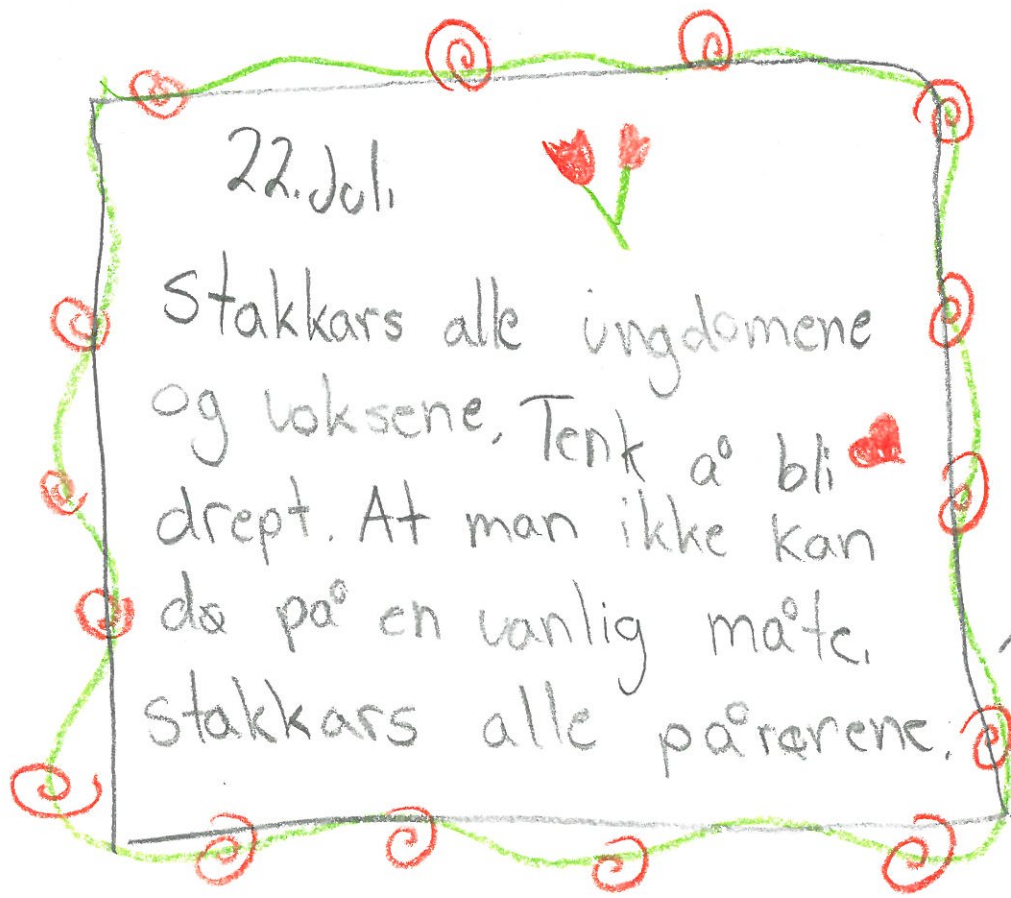 22. Juli
Stakkars alle ungdomene
og voksene. Tenk å bli
drept. At man ikke kan
dø på en vanlig måte.
stakkars alle pårørene.